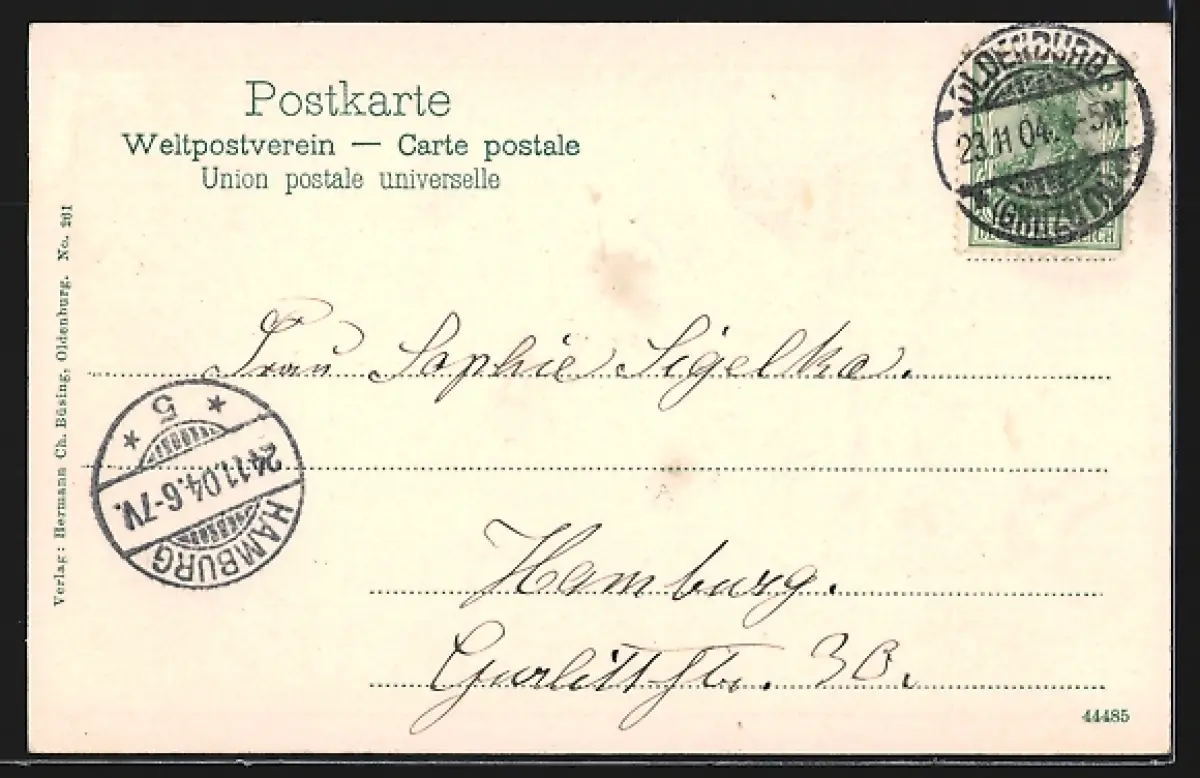 Postkarte
Weltpostverein — Carte postale
Union postale universelle
OLDENBURG
23.11.04. 4-5N.
(GRHZGTM)
REICH
Verlag: Hermann Ch. Büsing, Oldenburg. No. 261
Frau Sophie Sigelka.
5
24.11.04.6-7V.
HAMBURG
Hamburg.
Gurlittstr. 30.
44485